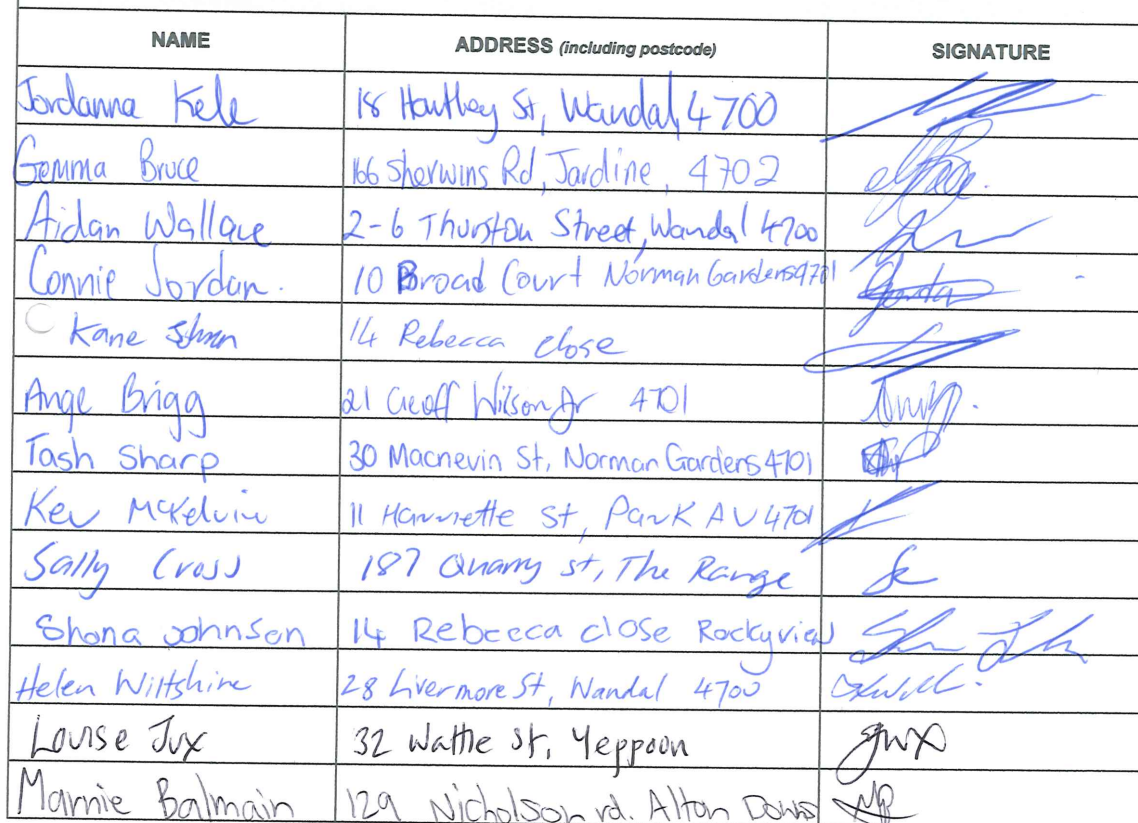 NAME ADDRESS (including postcode) SIGNATURE
Jordanna Kele 18 Hauthey St, Wandal, 4700
Gemma Bruce 166 Sherwins Rd, Jardine, 4702
Aidan Wallace 2-6 Thurston Street, Wandal 4700
Connie Jordan. 10 Broad Court Norman Gardens 4701
Kane 14 Rebecca close
Ange Brigg 21 Geoff Wilson Dr 4701
Tash Sharp 30 Macnevin St, Norman Gardens 4701
Kev McKelvie 11 Harriette St, Park AV 4701
Sally Cross 187 Quarry st, The Range
Shona Johnson 14 Rebecca close Rockyview
Helen Wiltshire 28 Livermore St, Wandal 4700
Louise Jux 32 Wattle St, Yeppoon
Marnie Balmain 129 Nicholson rd. Alton Downs